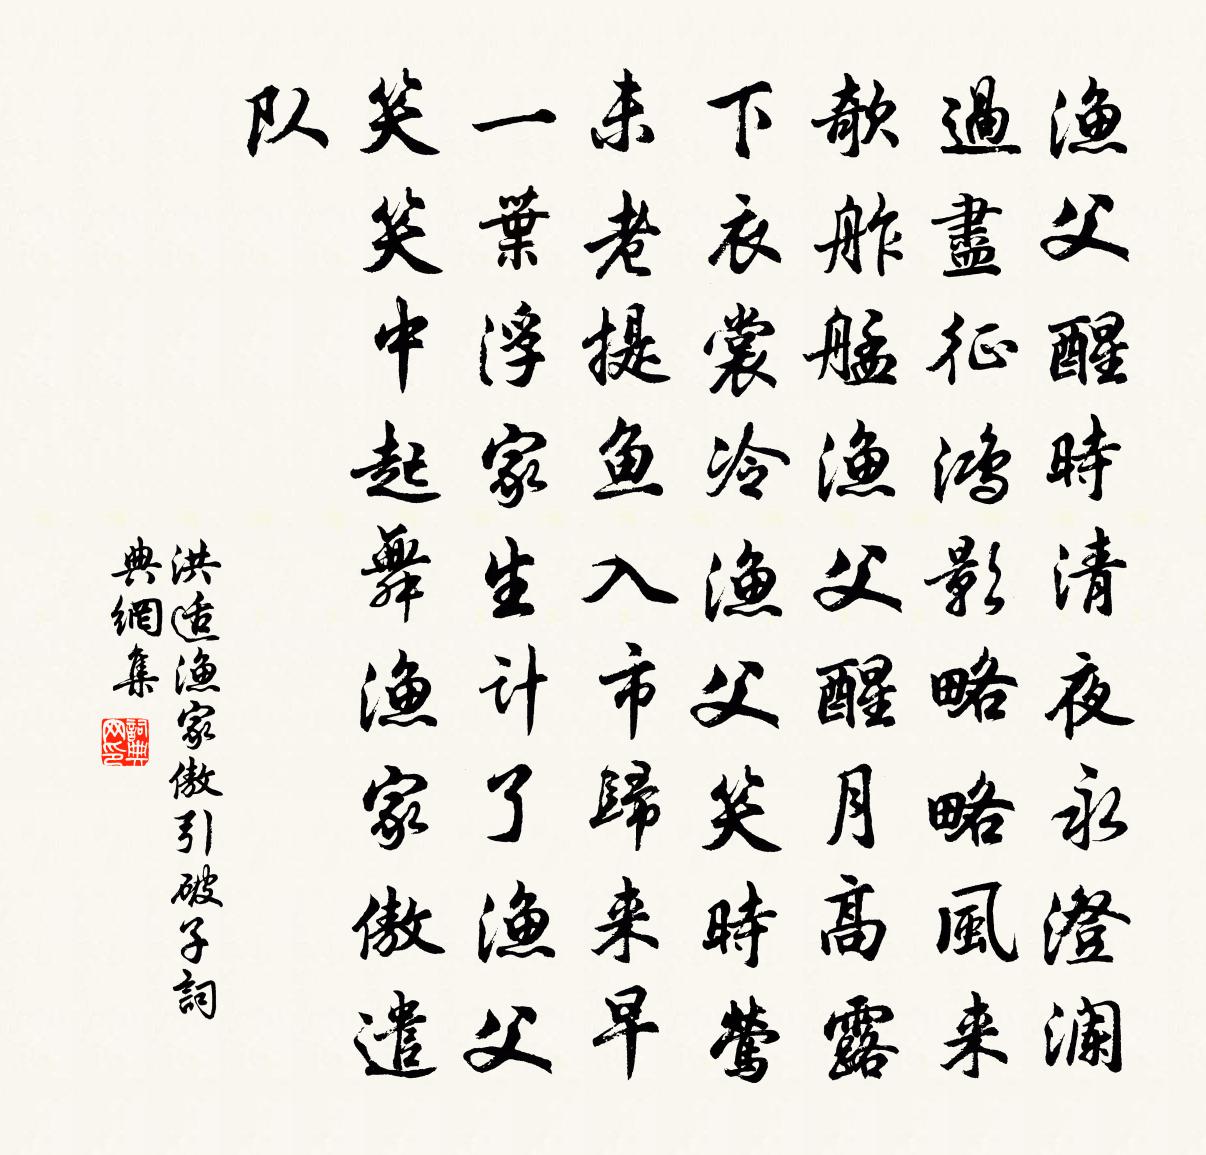 漁父醒時清夜永澄澜
過盡征鴻影略略風来
欹舴艋漁父醒月高露
下衣裳冷漁父笑時鶯
未老提鱼入市歸来早
一葉浮家生计了漁父
笑笑中起舞漁家傲遣
队
洪适漁家傲引破子詞
典網集
詞典
网印